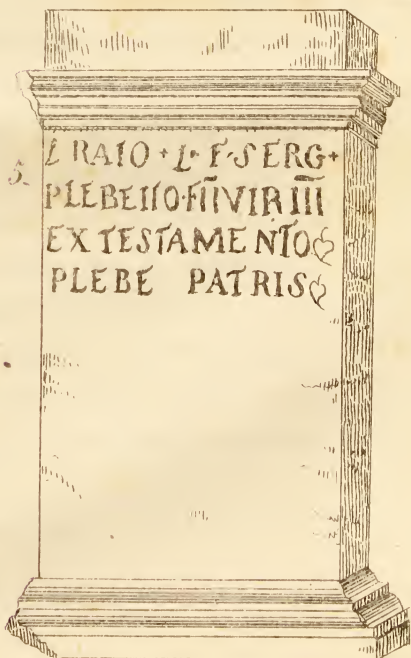 5.
L RAIO + L + F · SERG +
PLEBEIIO · FIĪVIR I̅I̅I̅
EX TESTAMENTO
PLEBE PATRIS